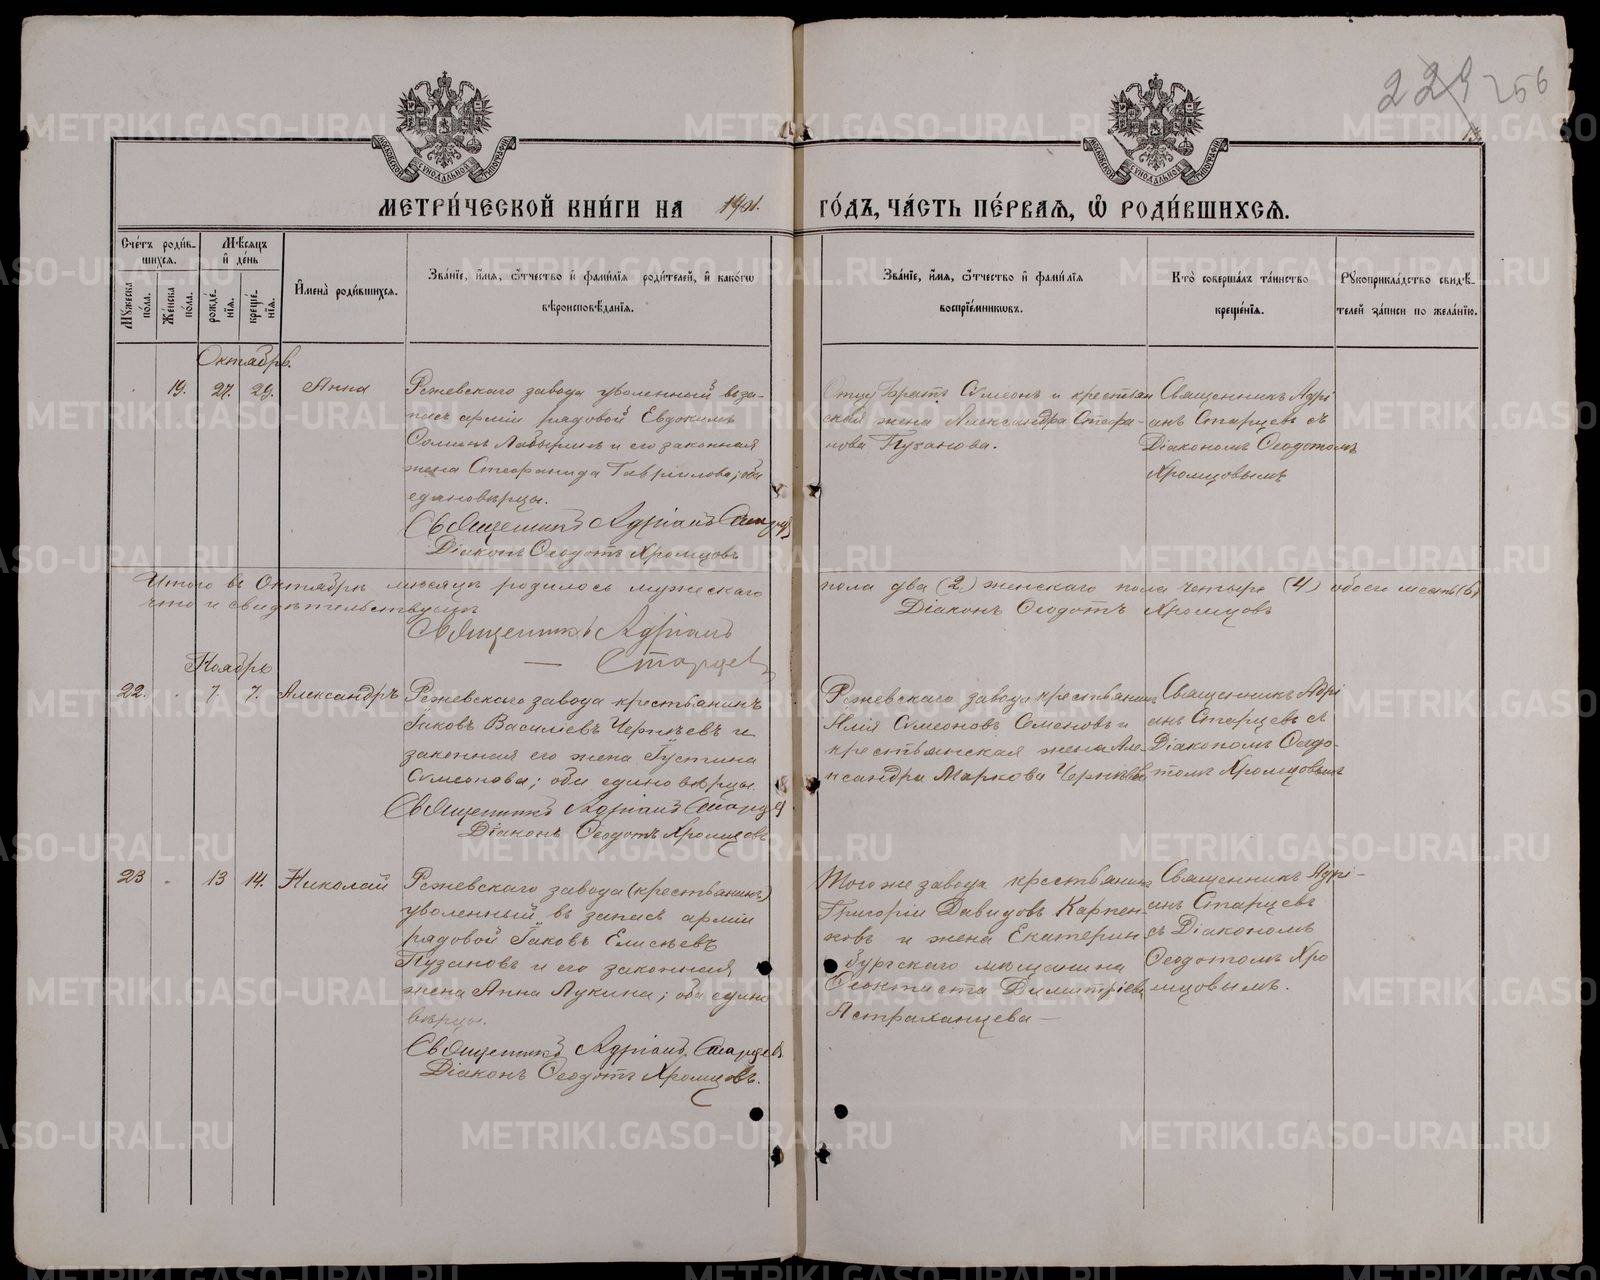 229 256
МЕТРИ́ЧЕСКОЙ КНИ́ГИ НА 1901. ГО́ДЪ, ЧА́СТЬ ПЕ́РВАѦ, Ѽ РОДИ́ВШИХСѦ.
Сче́тъ роди́в-
шихсѧ.
Мꙋ́жеска по́ла.
Же́нска по́ла.
Мѣ́сѧцъ и҆ де́нь
рожде́-нїѧ.
креще́-нїѧ.
И҆мена̀ роди́вшихсѧ.
Зва́нїе, и҆́мѧ, ѻ҆́тчество и҆ фами́лїѧ роди́телей, и҆ како́гѡ
вѣроисповѣ́данїѧ.
Зва́нїе, и҆́мѧ, ѻ҆́тчество и҆ фами́лїѧ
воспрїе́мникѡвъ.
Кто̀ соверша́лъ та́инство
креще́нїѧ.
Рꙋкоприкла́дство свидѣ́-
телей за́писи по жела́нїю.
Октябрь.
19. 27. 29. Анна
Режевскаго завода уволенный въ за-
пасъ арміи рядовой Евдокимъ
и его законная
жена Стефанида Гаврилова; оба
единовѣрцы.
Священникъ Адріанъ Старцевъ
Діаконъ Ѳеодотъ Хромцовъ
Отцу братъ Симеонъ и крестьян
ская жена Александра Стефа-
нова Пузанова.
Священникъ Адрі
анъ Старцевъ съ
Діакономъ Ѳеодотомъ
Хромцовымъ
Итого въ Октябрѣ мѣсяцѣ родилось мужескаго пола два (2) женскаго пола четыре (4) обоего шесть (6)
что и свидѣтельствуемъ
Священникъ Адріанъ
Старцевъ
Діаконъ Ѳеодотъ Хромцовъ
Ноябрь
22. 7. 7. Александръ
Режевскаго завода крестьянинъ
Іаковъ Васильевъ Чернѣевъ и
законная его жена Іустина
Симеонова; оба единовѣрцы.
Священникъ Адріанъ Старцев
Діаконъ Ѳеодотъ Хромцовъ
Режевскаго завода крестьянинъ
Илія Симеоновъ Семеновъ и
крестьянская жена Але-
ксандра Маркова Чернѣева
Священникъ Адрі
анъ Старцевъ съ
Діакономъ Ѳеодо-
томъ Хромцовымъ
23 13 14. Николай
Режевскаго завода (крестьянинъ)
уволенный въ запасъ арміи
рядовой Іаковъ Елисѣевъ
Пузановъ и его законная
жена Анна Лукина; оба едино
вѣрцы.
Священникъ Адріанъ Старцевъ
Діаконъ Ѳеодотъ Хромцовъ.
Того же завода крестьянинъ
Григорій Давидовъ Карпен-
ковъ и жена Екатерин
бургскаго мѣщанина
Ѳеоктиста Димитріева
Астраханцева —
Священникъ Адрі-
анъ Старцевъ
съ Діакономъ
Ѳеодотомъ Хро
мцовымъ.